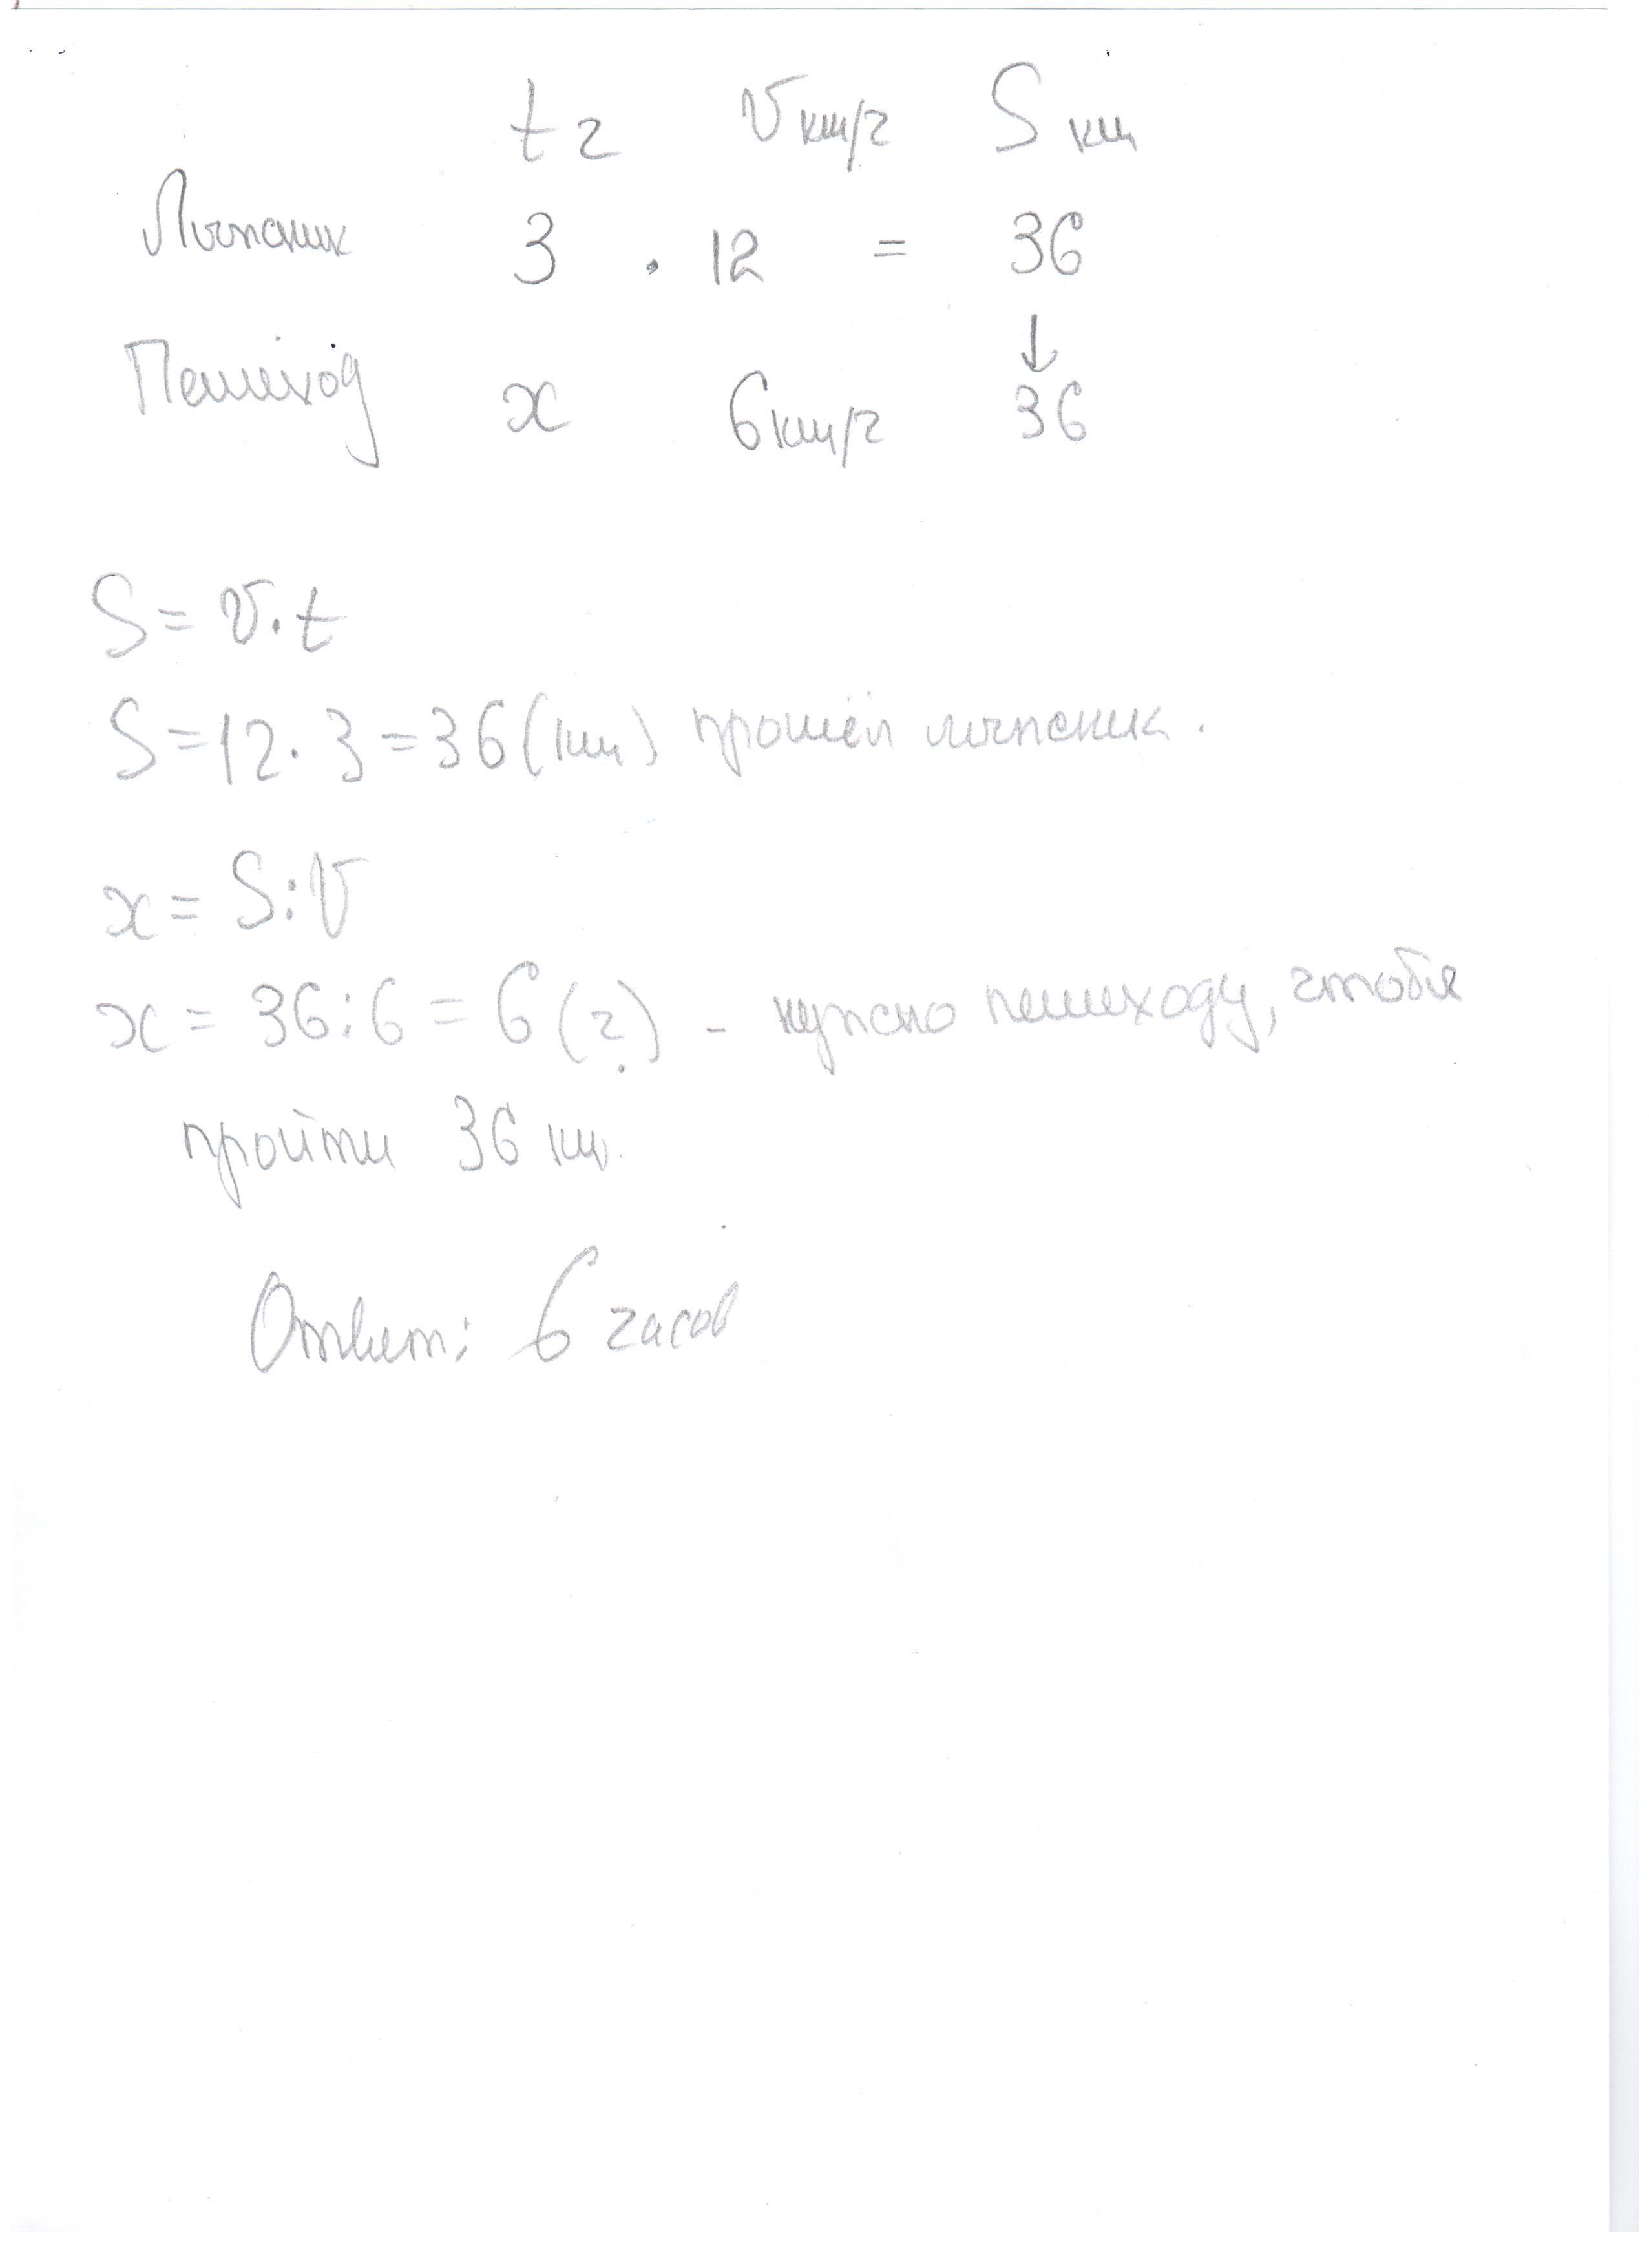 t ч v км/ч S км
Лыжник 3 · 12 = 36
↓
Пешеход x 6 км/ч 36
S = v · t
S = 12 · 3 = 36 (км) прошёл лыжник.
x = S : v
x = 36 : 6 = 6 (ч) - нужно пешеходу, чтобы
пройти 36 км.
Ответ: 6 часов